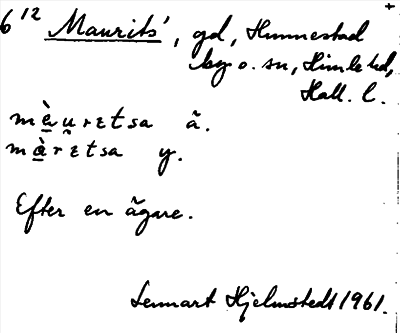 6¹² Maurits', gd, Hunnestad
by o. sn, Himle hd,
Hall. l.
màu̯rɛtsa ä.
màrɛtsa y.
Efter en ägare.
Lennart Hjelmstedt 1961.